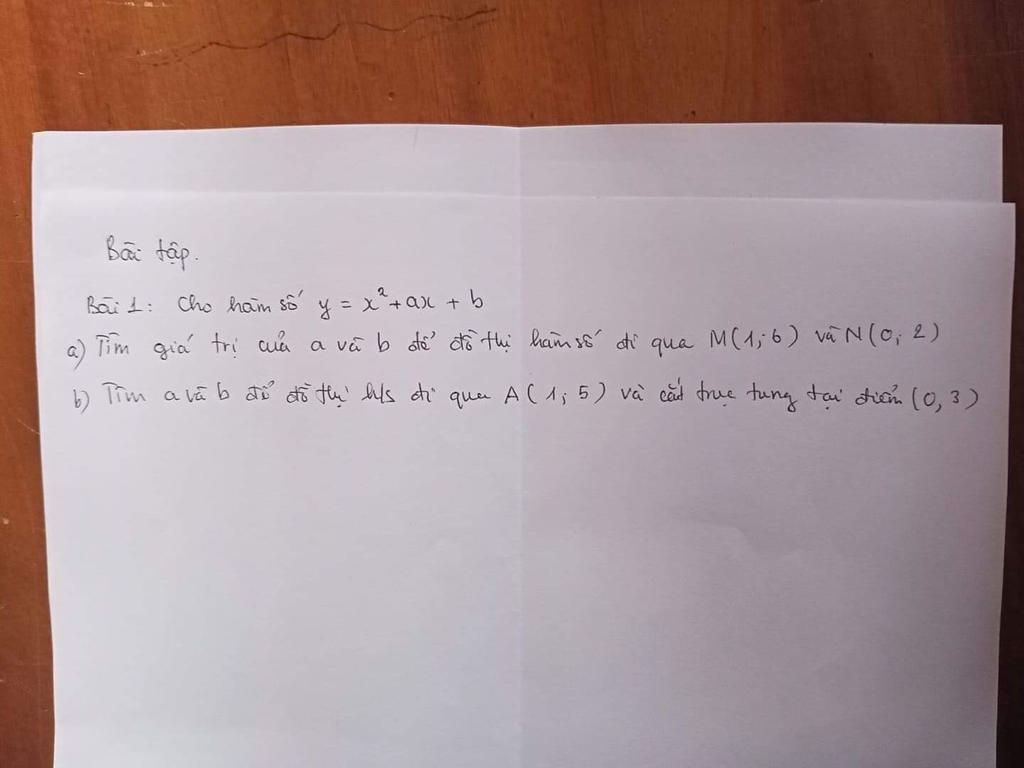 Bài tập.
Bài 1: Cho hàm số y = x² + ax + b
a) Tìm giá trị của a và b để đồ thị hàm số đi qua M(1; 6) và N(0; 2)
b) Tìm a và b để đồ thị h/s đi qua A(1; 5) và cắt trục tung tại điểm (0, 3)